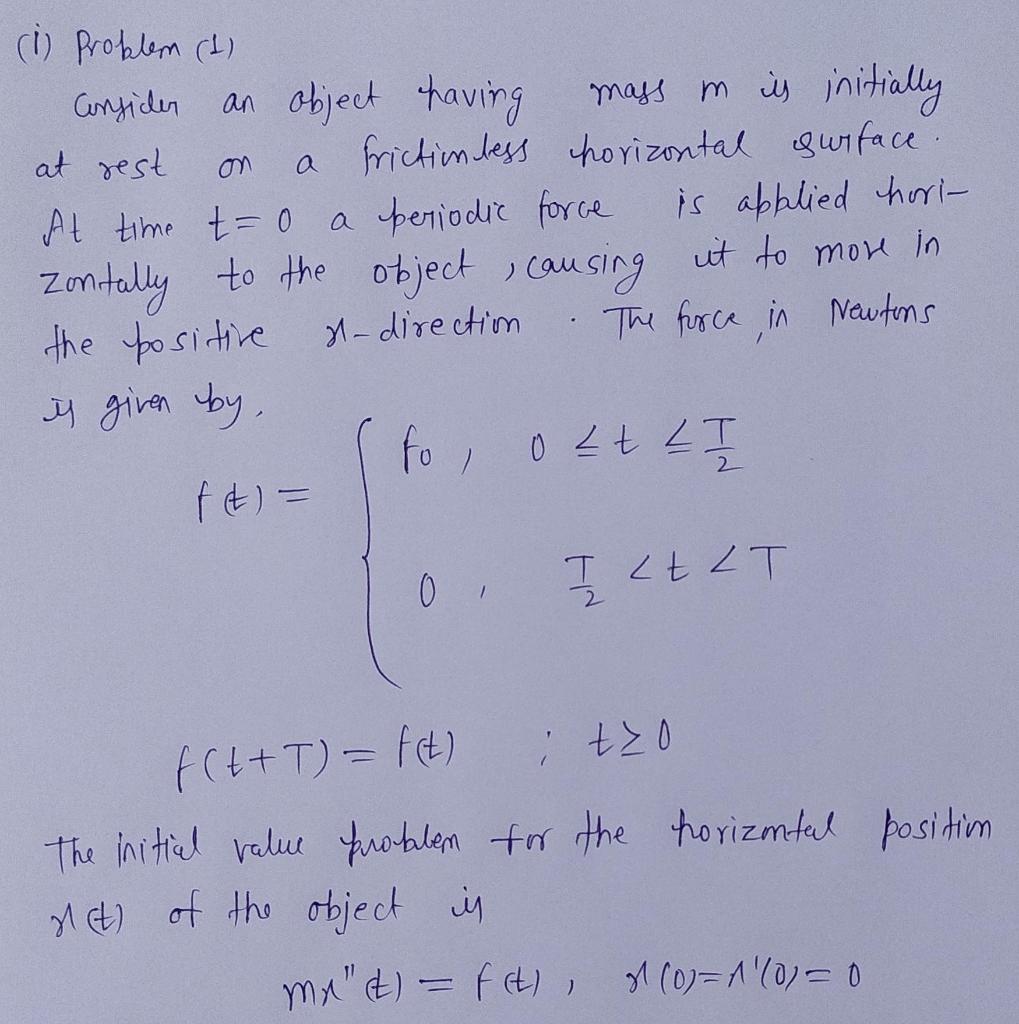 (i) Problem (1)
Consider an object having mass m is initially
at rest on a frictionless horizontal surface.
At time t=0 a periodic force is applied hori-
zontally to the object, causing it to move in
the positive x-direction. The force, in Newtons
is given by,
f(t) = { f0, 0 ≤ t ≤ T/2
0, T/2 < t < T
f(t+T) = f(t) ; t≥0
The initial value problem for the horizontal position
x(t) of the object is
mx"(t) = f(t), x(0)=x'(0)=0